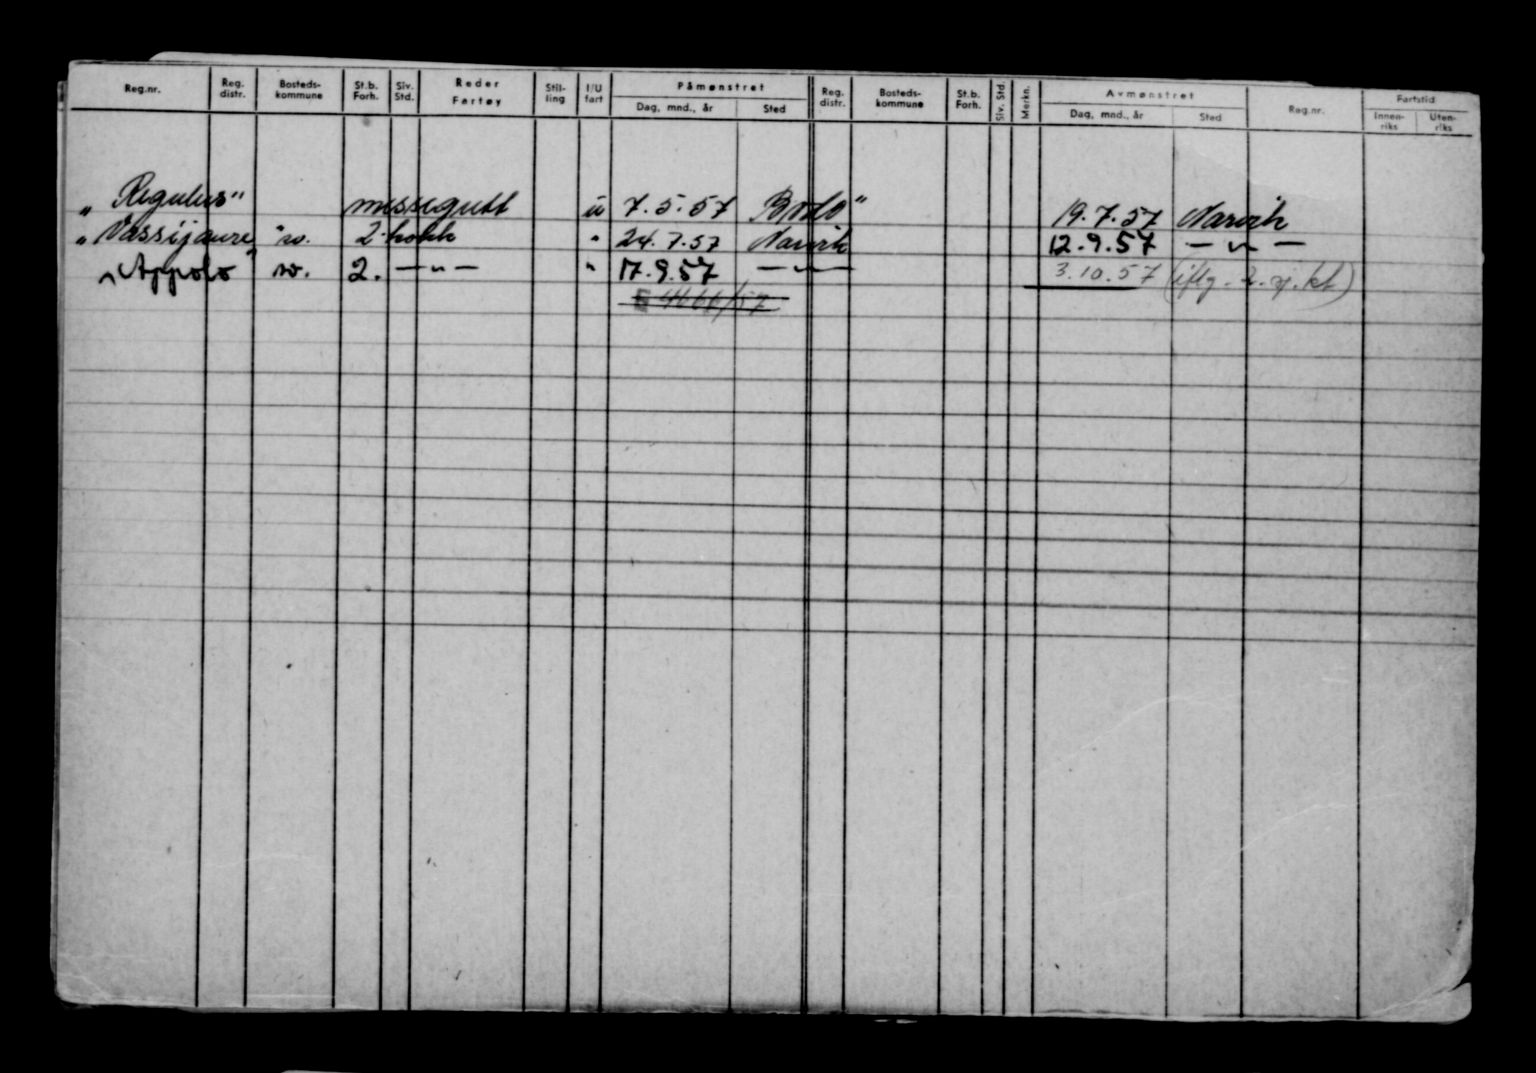 Reg.nr. Reg. distr. Bosteds-kommune St.b. Forh. Siv. Std. Reder Fartøy Stil-ling I/U fart Påmønstret Dag, mnd., år Sted Reg. distr. Bosteds-kommune St.b. Forh. Siv. Std. Merkn. Avmønstret Dag, mnd., år Sted Reg.nr. Fartstid Innen-riks Uten-riks
„Regulus" messegutt u 7.5.57 Bodø" 19.7.57 Narvik
„Vassijaure" sv. 2. kokk " 24.7.57 Narvik 12.9.57 — " —
„Appolo" sv. 2. — " — " 17.9.57 — " — 3.10.57 (iflg.
4466/57